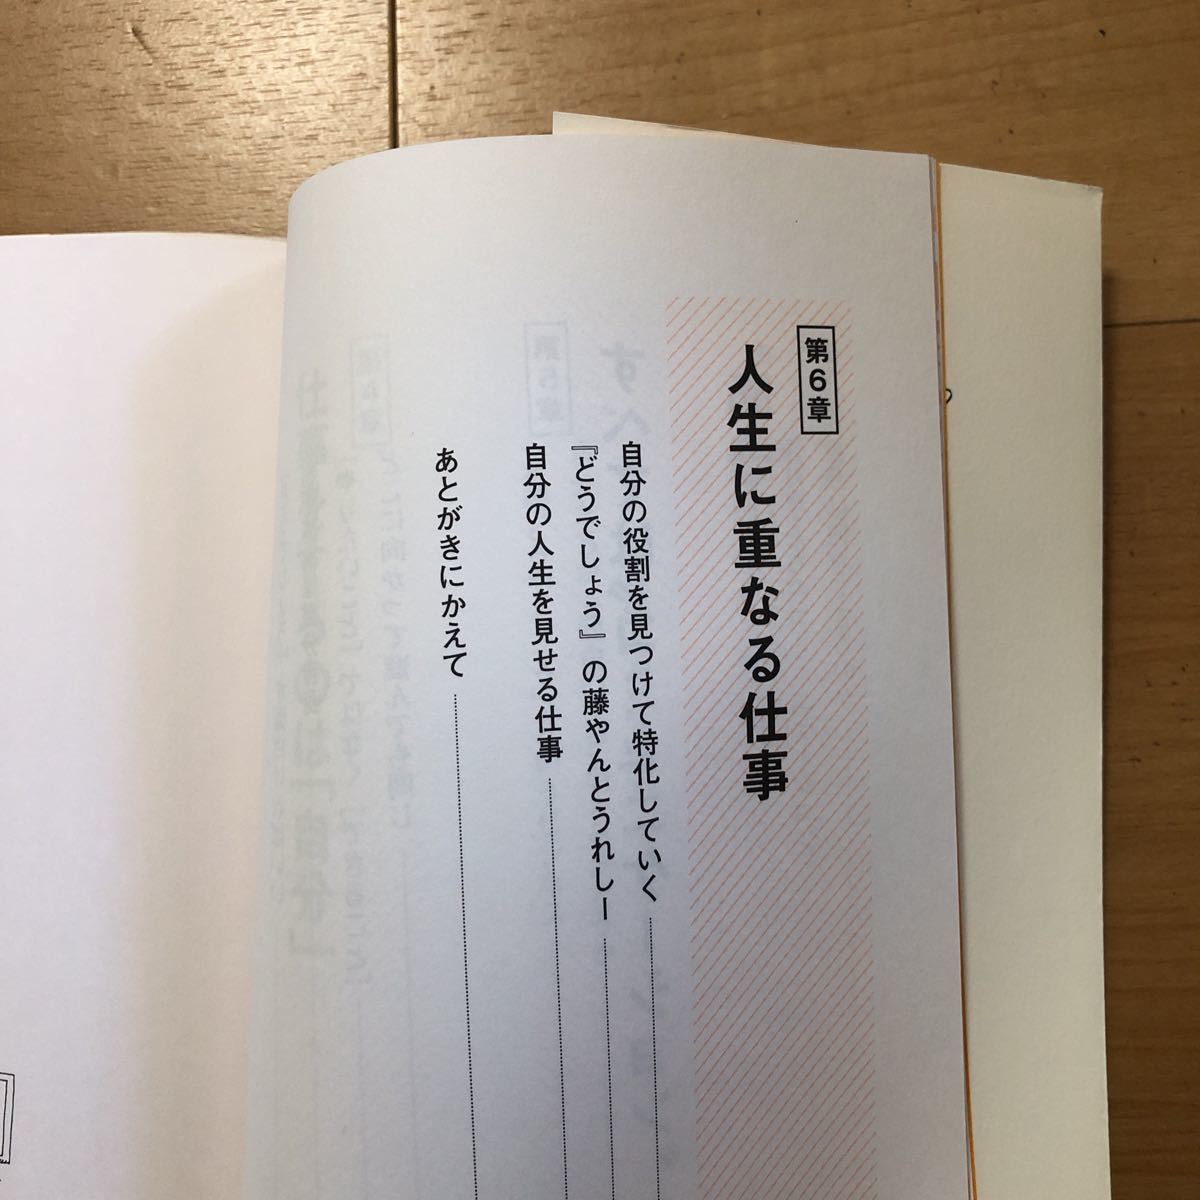 第6章
人生に重なる仕事
自分の役割を見つけて特化していく
『どうでしょう』の藤やんとうれしー
自分の人生を見せる仕事
あとがきにかえて